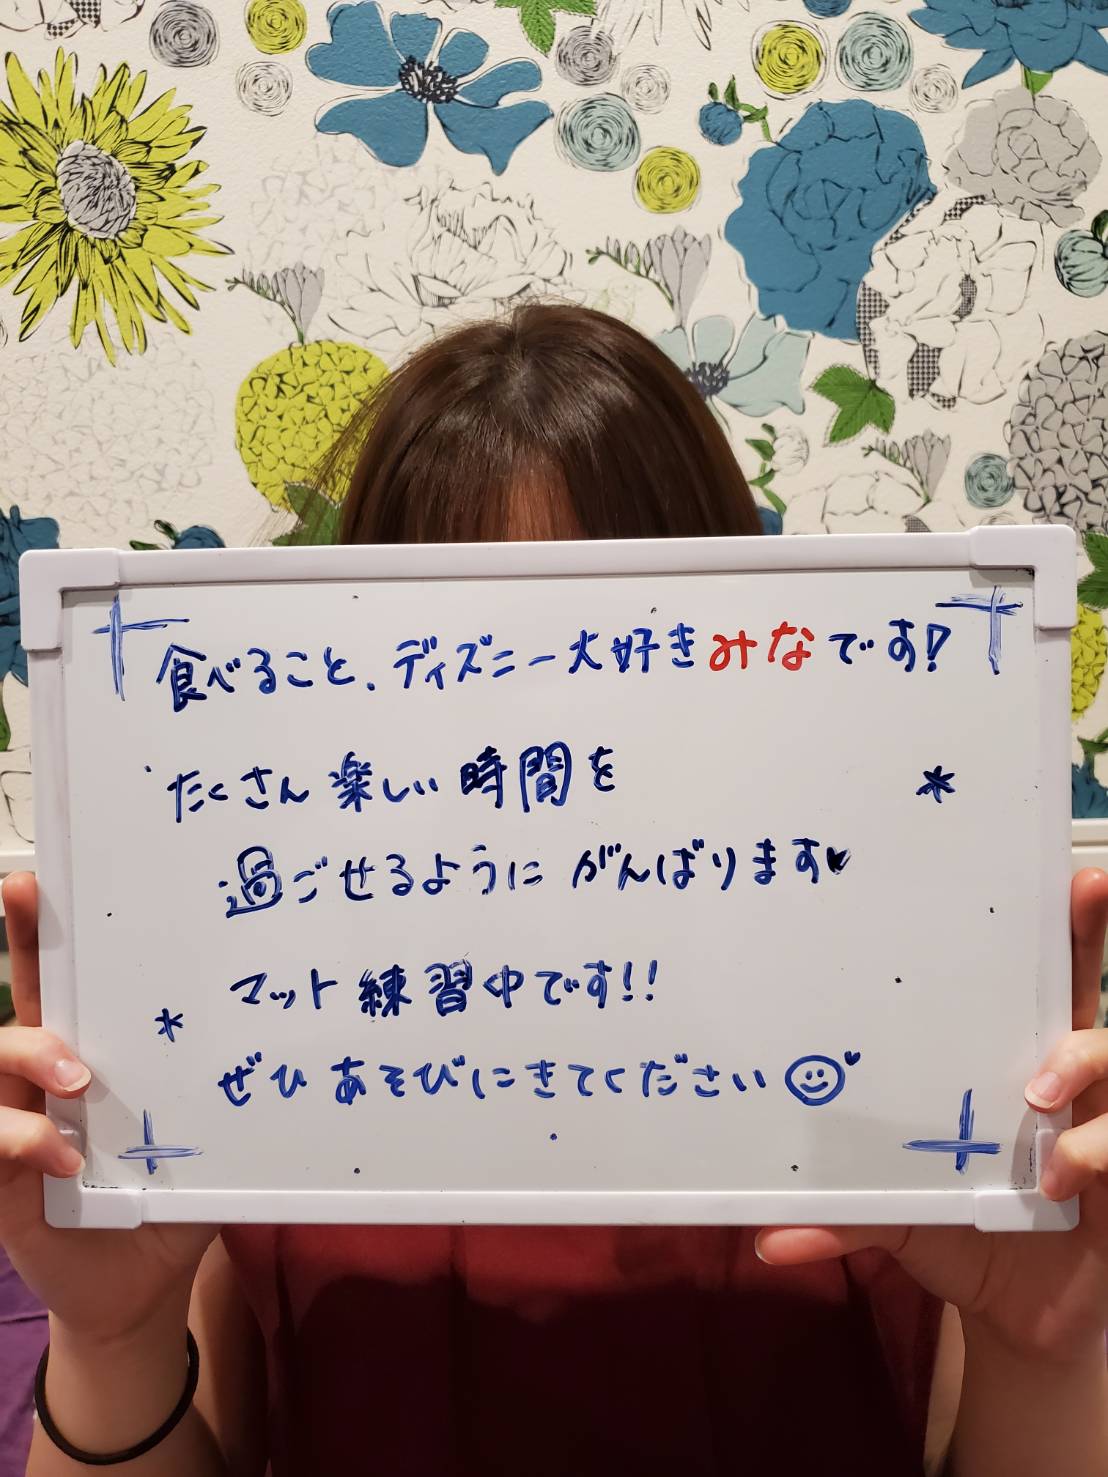 食べること、ディズニー大好きみなです!
たくさん楽しい時間を
過ごせるように がんばります♥
マット練習中です!!
ぜひ あそびにきてください☺♥